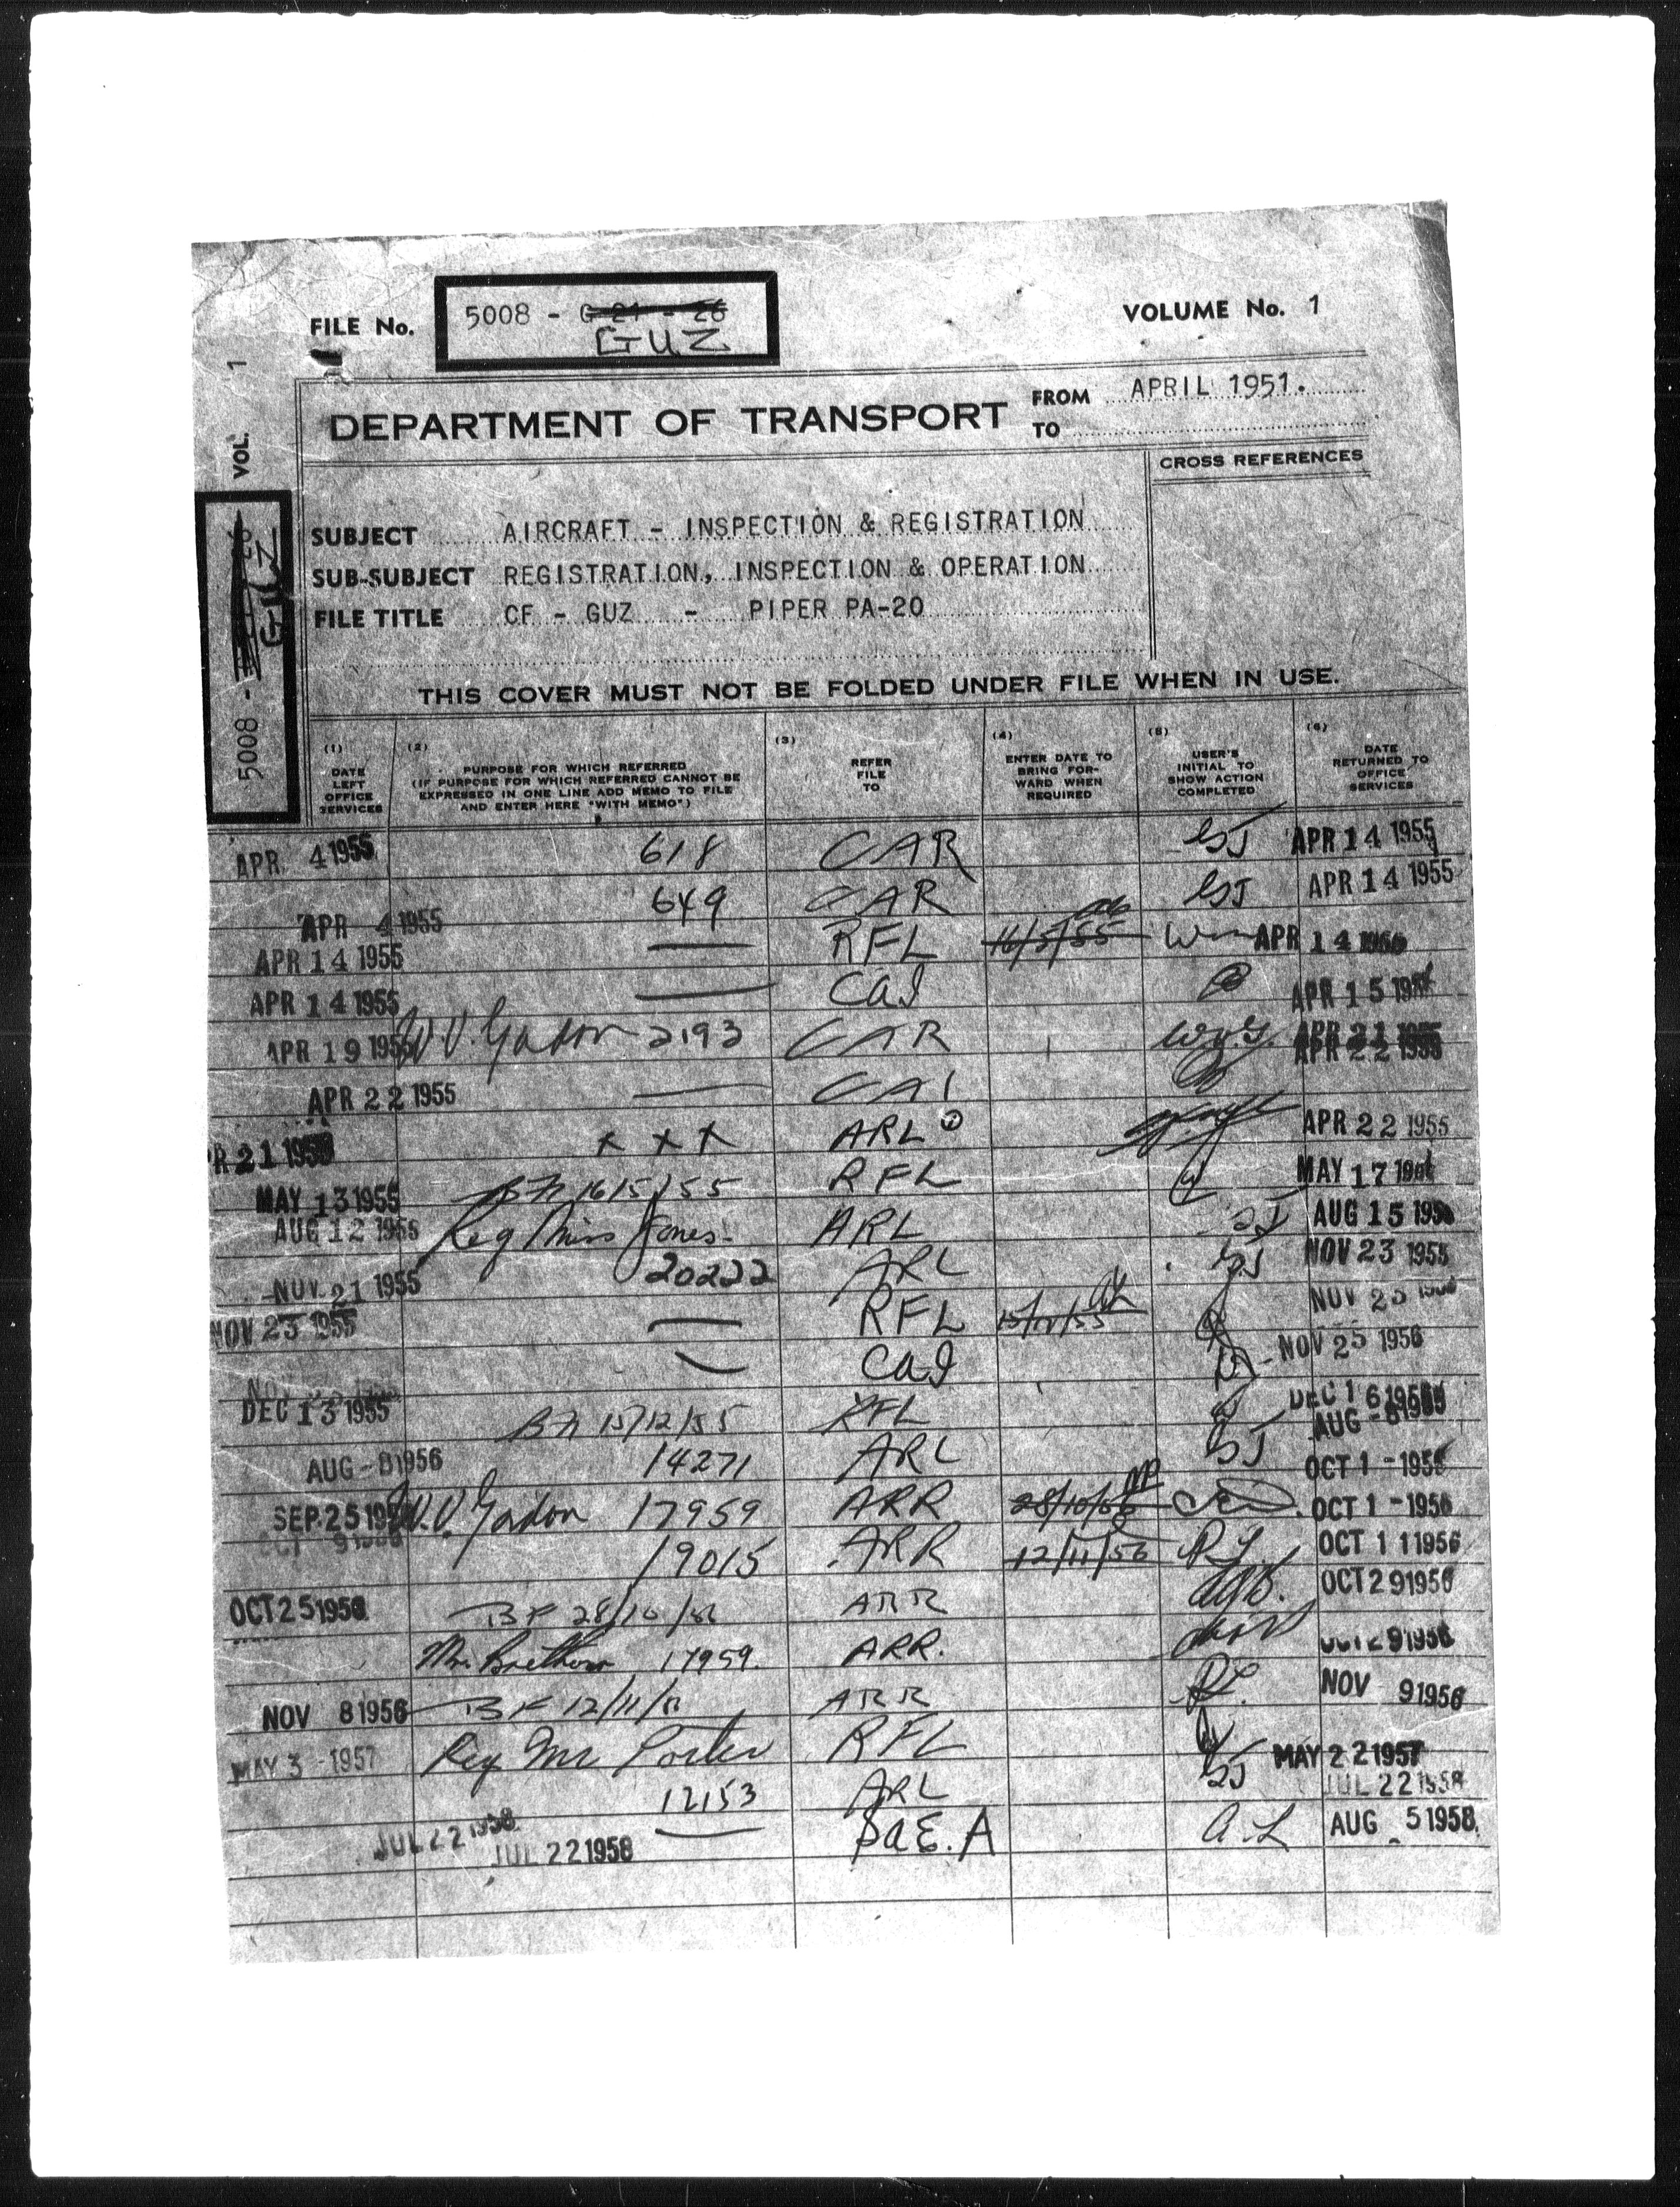 FILE No. 5008 - G-21 - 26 VOLUME No. 1
GUZ
DEPARTMENT OF TRANSPORT FROM APRIL 1951.
TO
CROSS REFERENCES
VOL. 1
5008 - GUZ
SUBJECT AIRCRAFT - INSPECTION & REGISTRATION
SUB-SUBJECT REGISTRATION, INSPECTION & OPERATION
FILE TITLE CF - GUZ - PIPER PA-20
THIS COVER MUST NOT BE FOLDED UNDER FILE WHEN IN USE.
(1) DATE LEFT OFFICE SERVICES
(2) PURPOSE FOR WHICH REFERRED (IF PURPOSE FOR WHICH REFERRED CANNOT BE EXPRESSED IN ONE LINE ADD MEMO TO FILE AND ENTER HERE "WITH MEMO")
(3) REFER FILE TO
(4) ENTER DATE TO BRING FORWARD WHEN REQUIRED
(5) USER'S INITIAL TO SHOW ACTION COMPLETED
(6) DATE RETURNED TO OFFICE SERVICES
APR 4 1955 618 CAR GJ APR 14 1955
APR 4 1955 649 CAR GJ APR 14 1955
APR 14 1955 — RFL 16/5/55 APR 14
APR 14 1955 — CAI APR 15
APR 19 1955 W.V. Yadon 2193 CAR WVY. APR 21 1955
APR 22 1955
APR 22 1955 — CAI
APR 21 1955 x x x ARL APR 22 1955
MAY 13 1955 BF 16/5/55 RFL MAY 17
AUG 12 1955 Reg Miss Jones ARL GJ AUG 15
NOV 21 1955 20222 ARL GJ NOV 23 1955
NOV 23 1955 — RFL 15/12/55 NOV 25
— CAI NOV 25 1956
DEC 13 1955 BF 15/12/55 RFL DEC 16
AUG -8 1956 14271 ARL GJ AUG -8
OCT 1 -1956
SEP 25 W.V. Yadon 17959 ARR 28/10/56 OCT 1 -1956
19015 ARR 12/11/56 OCT 11 1956
OCT 25 1956 BF 28/10/56 ARR OCT 29 1956
Mr. 17959 ARR. OCT 29 1956
NOV 8 1956 BF 12/11/56 ARR NOV 9 1956
MAY 3 -1957 Reg Mr Porter RFL MAY 22 1957
12153 ARL GJ JUL 22 1958
JUL 22 1958 JUL 22 1958 — DaE.A A.L AUG 5 1958